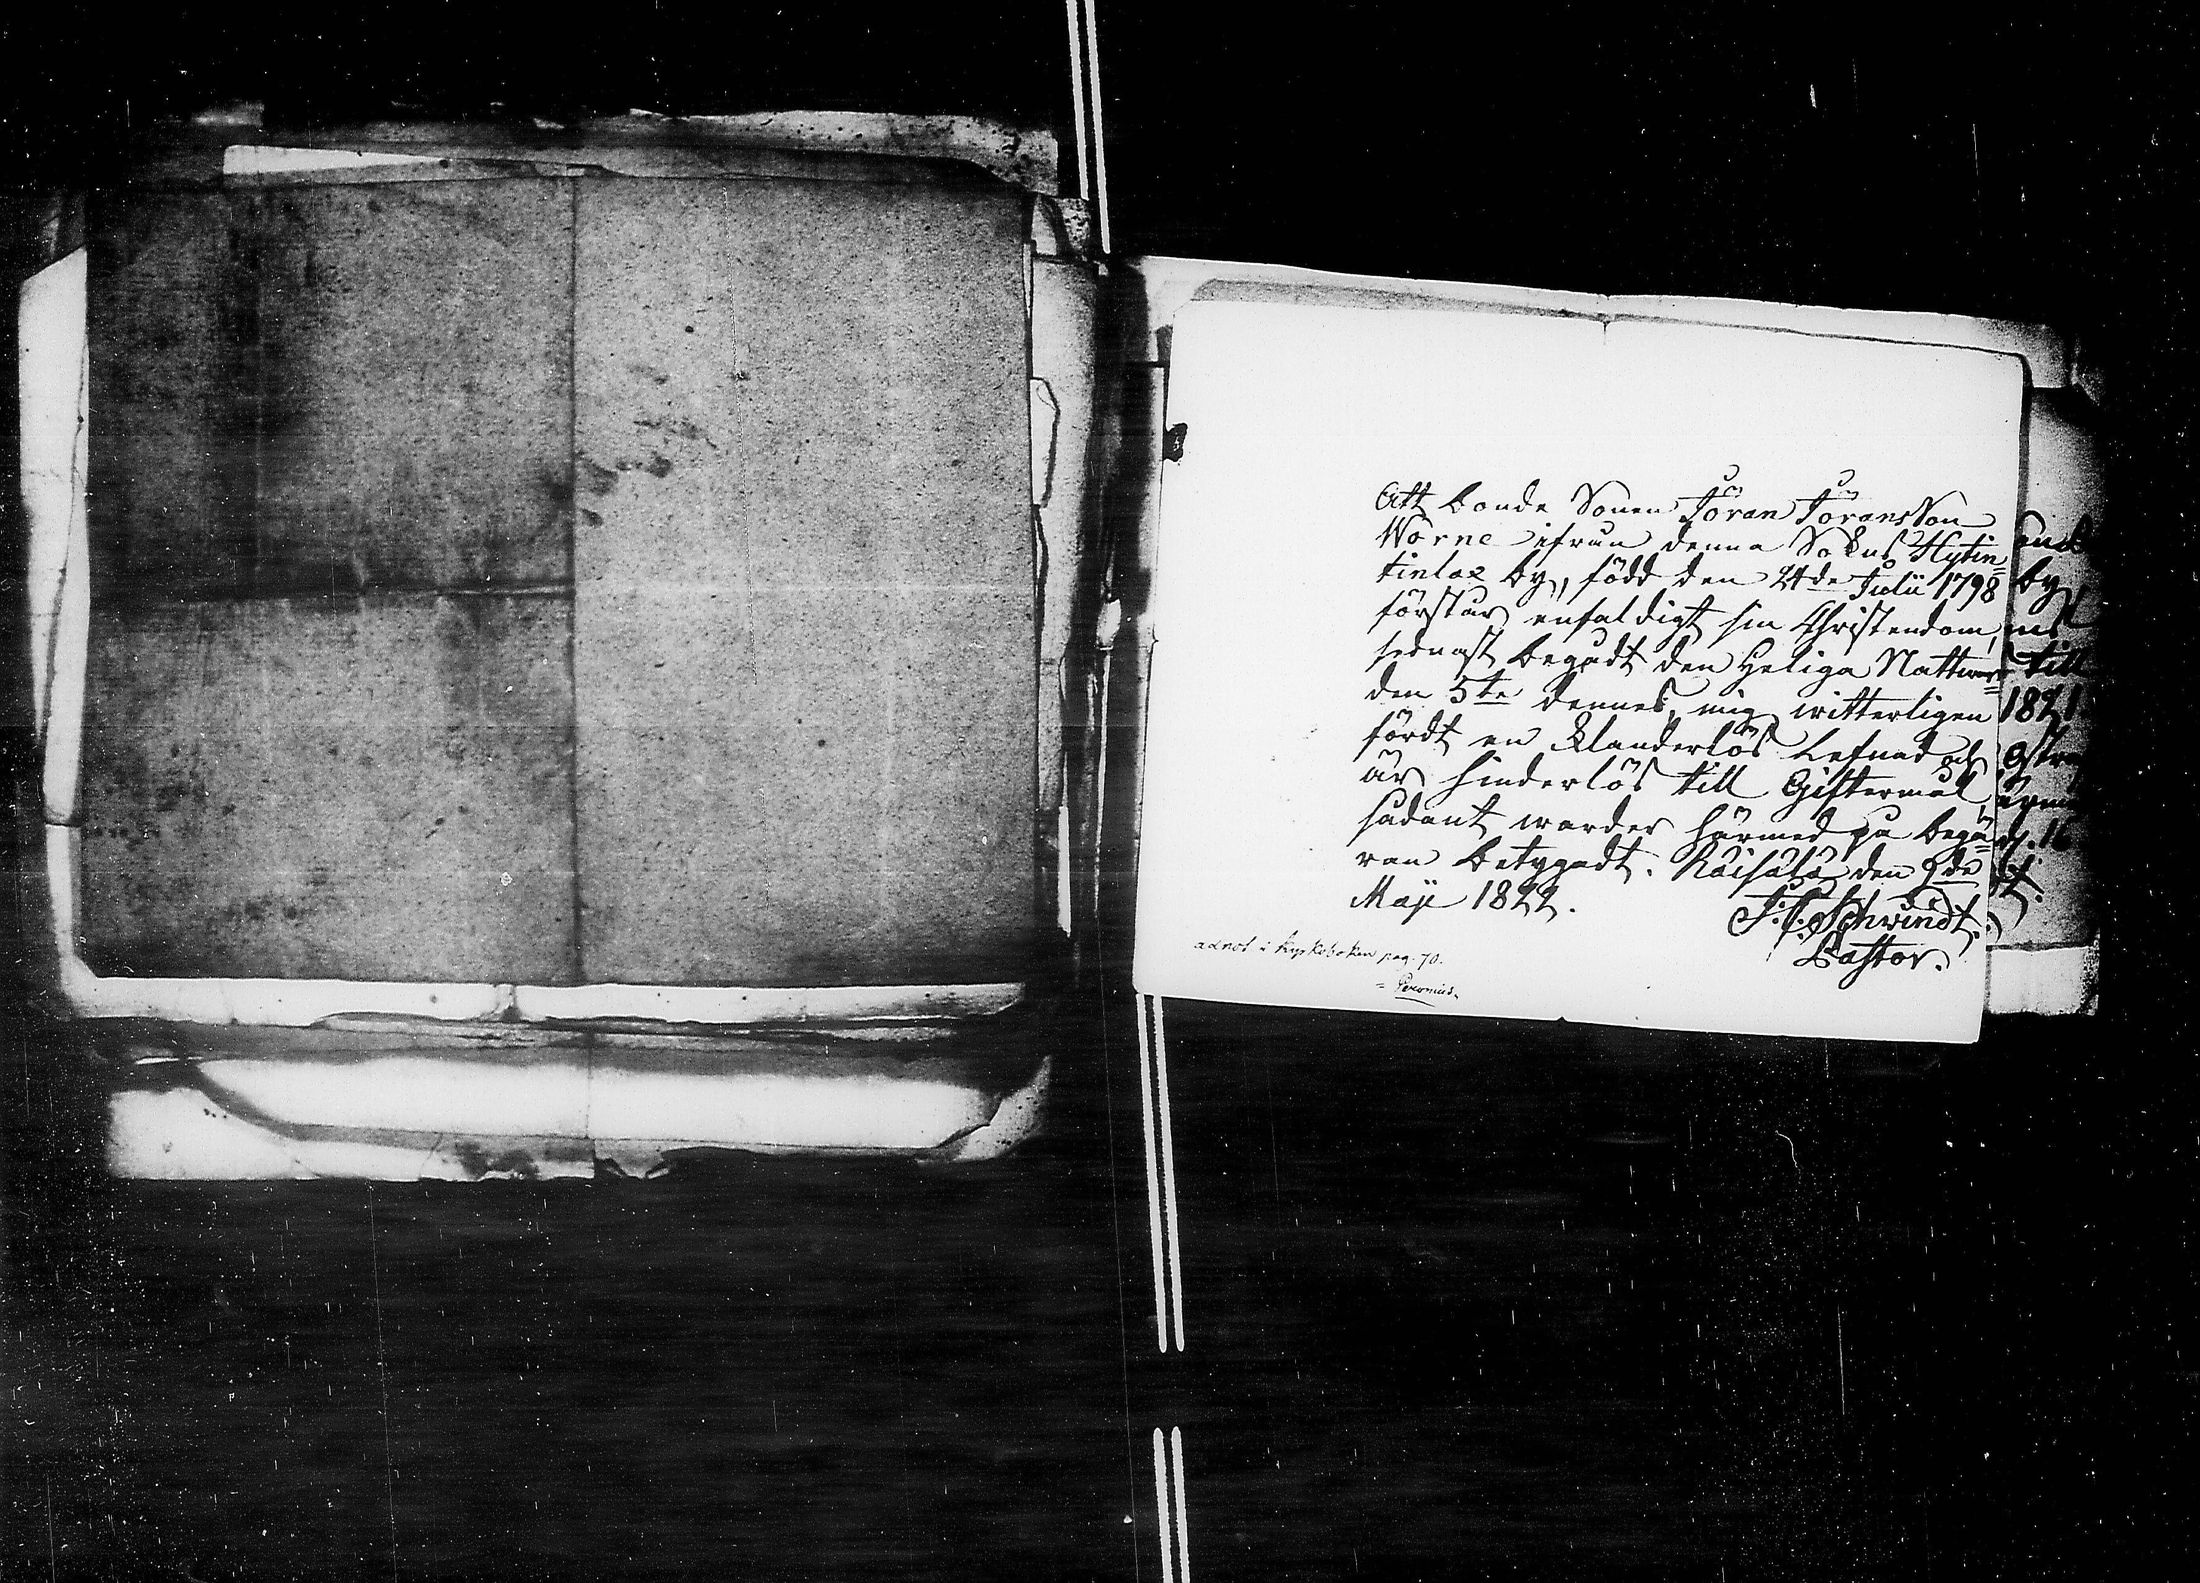 Att bonde Sonen Jöran Jörans Son
Worne ifrån denna Sokns Hytin=
tinlax by, född den 24de Julii 1798
förstår enfaldigt sin Christendom,
sednast begådt den Heliga Nattward=
den 5te dennes, mig witterligen
fördt en klanderlös Lefnad och
är hinderlös till Giftermål,
sådant warder härmed på begä=
ran betygadt. Räisälä den 9de
Maji 1822.
J. C. Schwindt.
Pastor.
adnot i kyrkoboken pag. 70.
by
till
1821